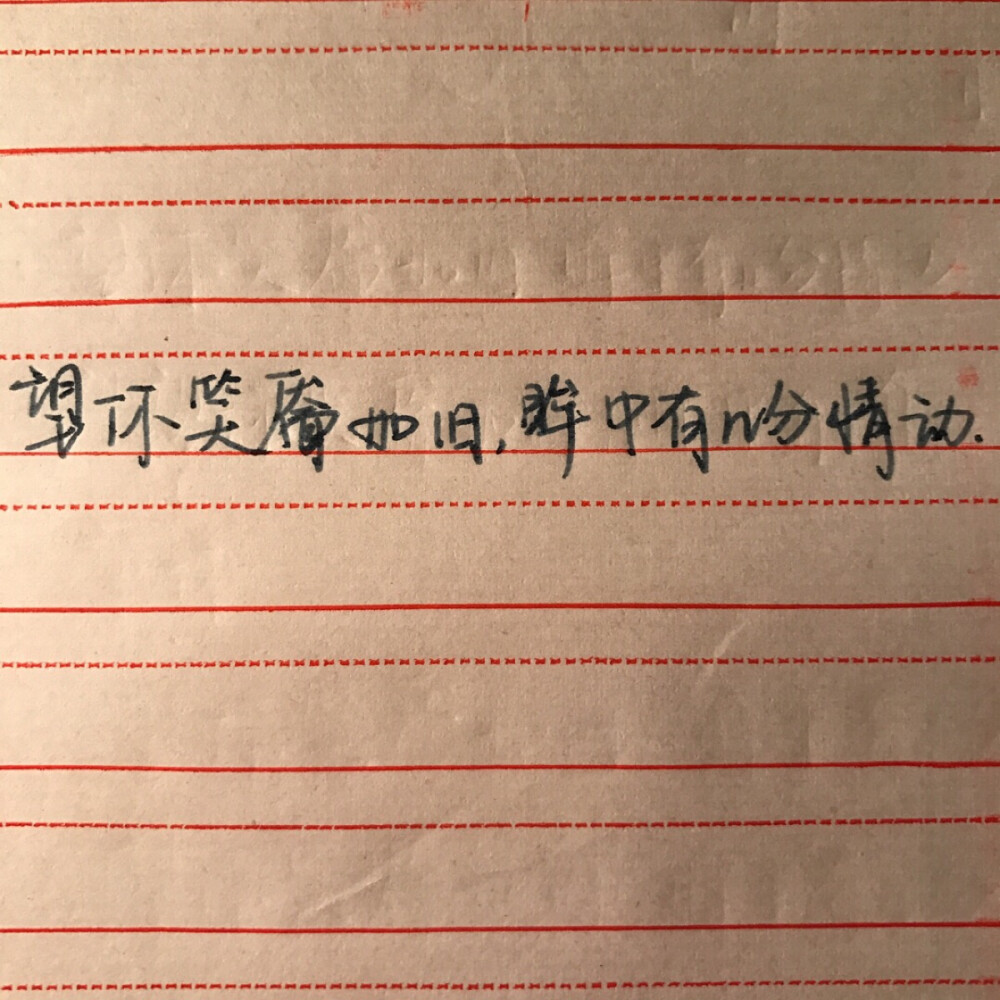 望环笑靥如旧,眸中有几分情动.